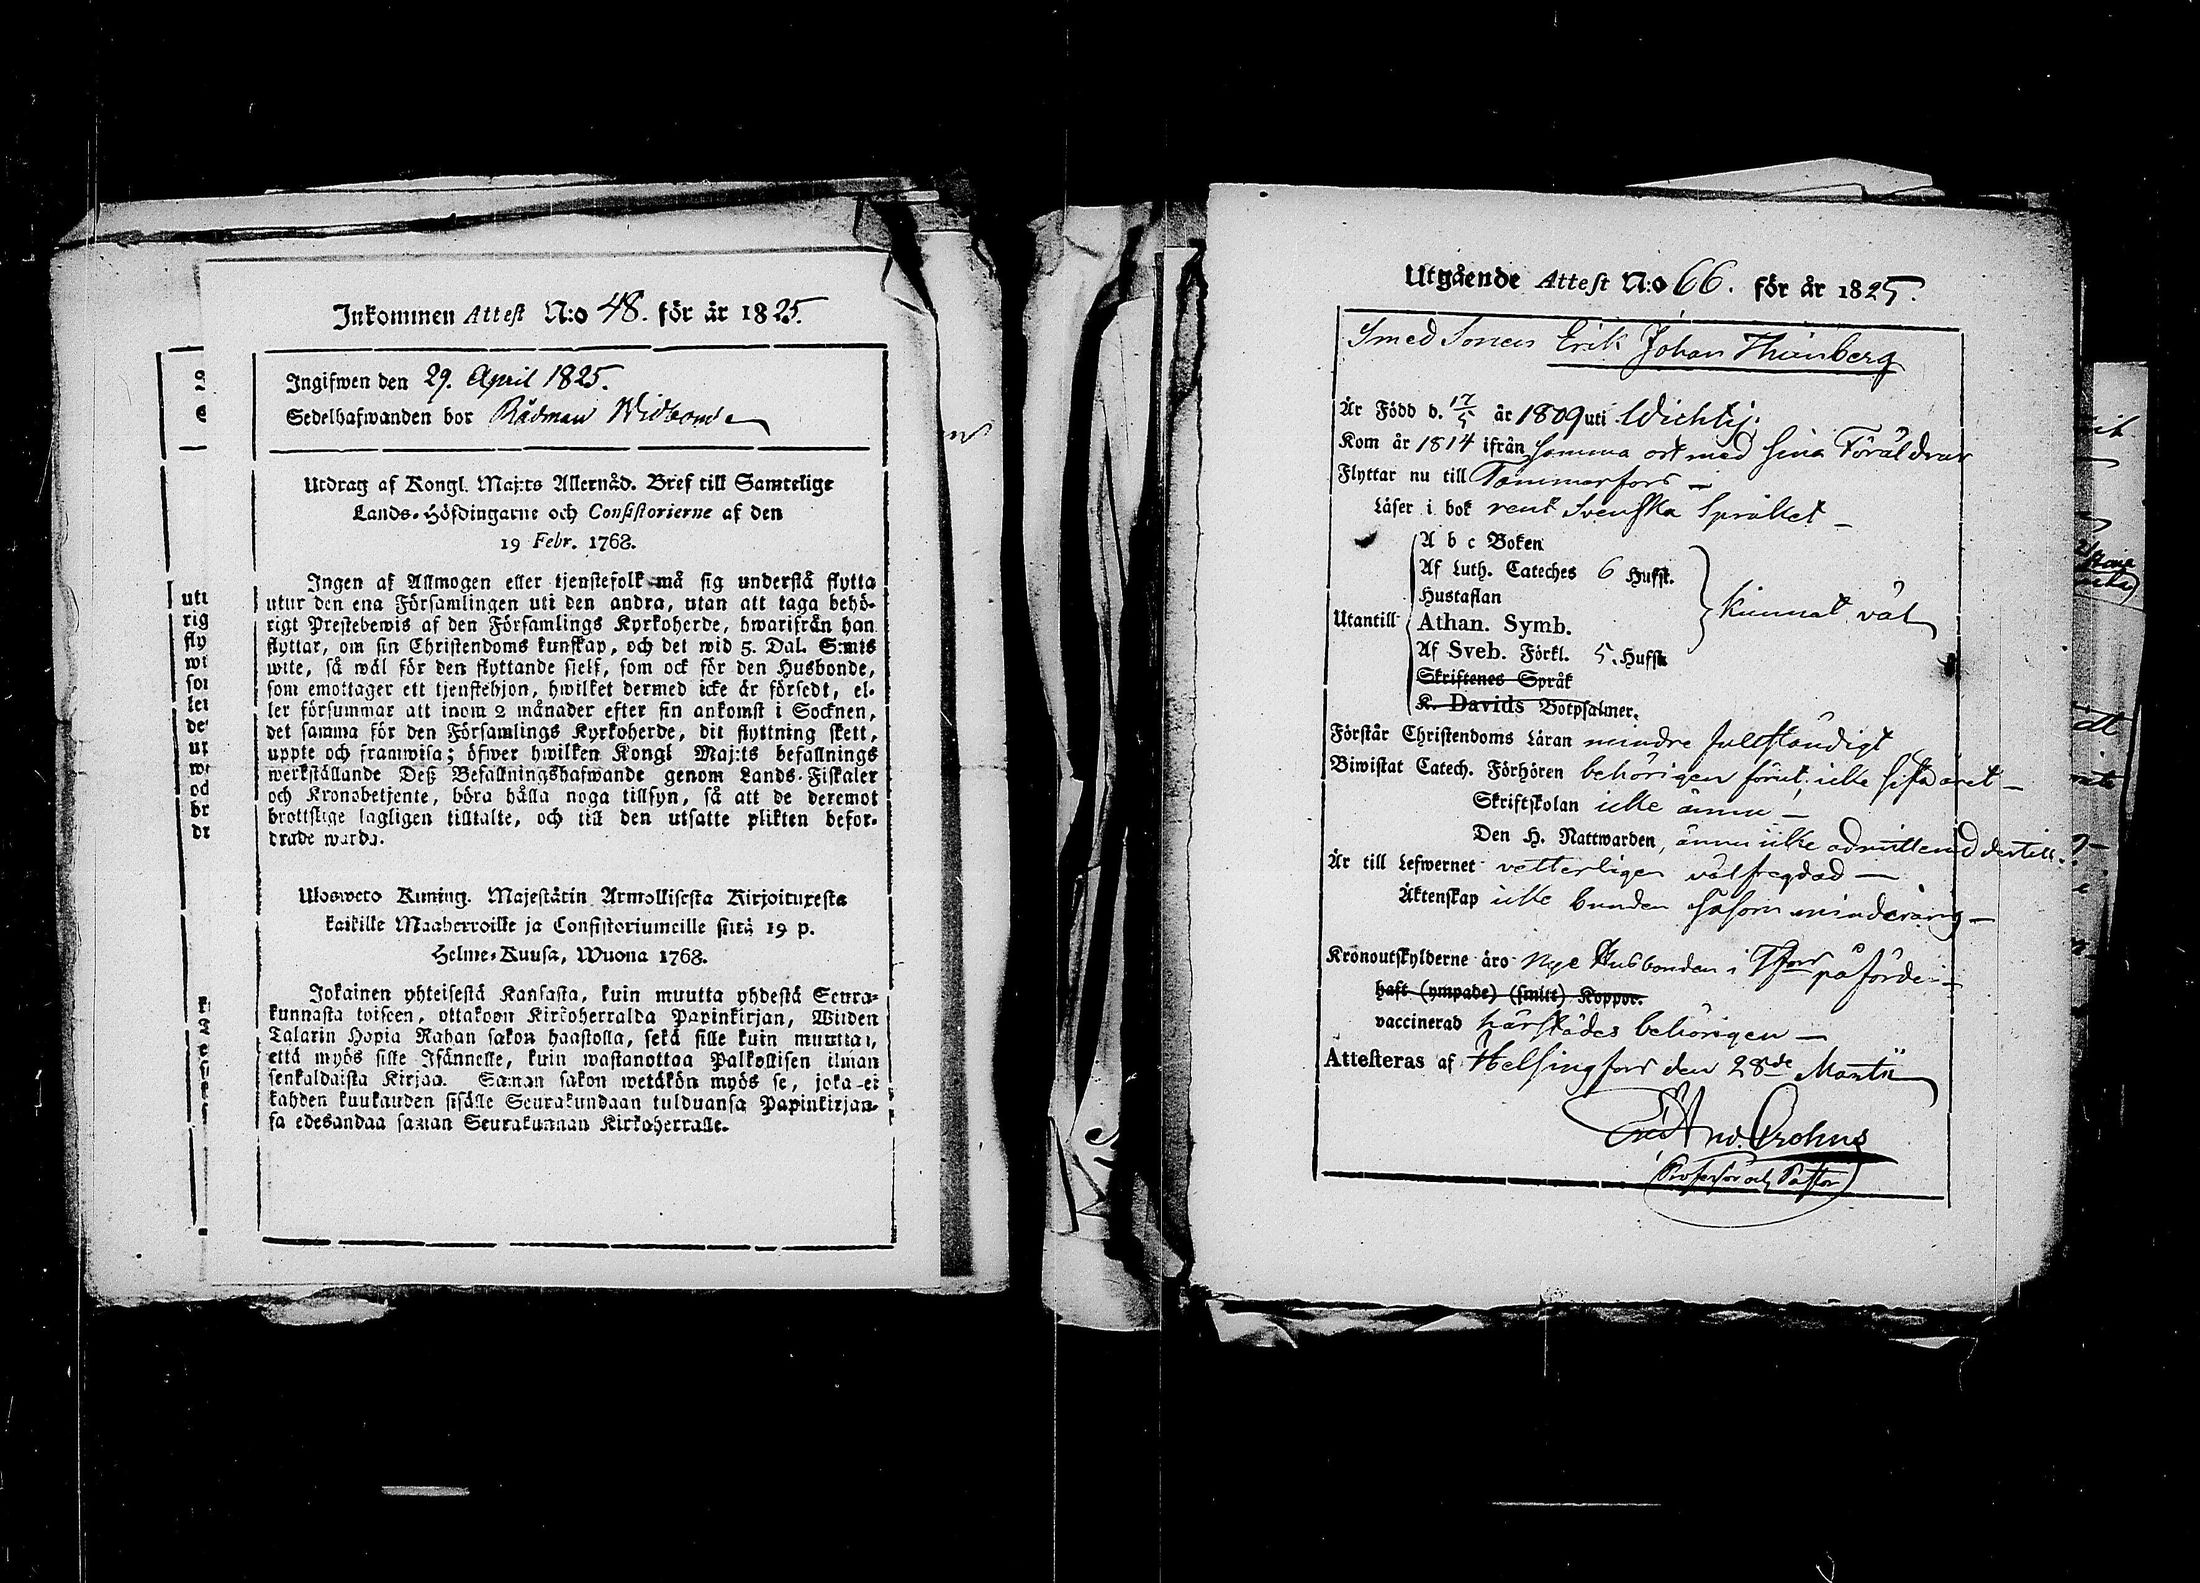 Inkommen Attest N:o 48. för år 1825.
Ingifwen den 29. April 1825.
Sedelhafwanden bor Rådman Widbom
Utdrag af Kongl. Maj:ts Allernåd. Bref till Samtelige
Lands-Höfdingarne och Consistorierne af den
19 Febr. 1768.
Ingen af Allmogen eller tjenstefolk må sig understå flytta
utur den ena Församlingen uti den andra, utan att taga behö-
rigt Prestebewis af den Församlings Kyrkoherde, hwarifrån han
flyttar, om sin Christendoms kunskap, och det wid 5. Dal. S:mts
wite, så wäl för den flyttande sielf, som ock för den Husbonde,
som emottager ett tjenstehjon, hwilket dermed icke är försedt, el-
ler försummar att inom 2 månader efter sin ankomst i Socknen,
det samma för den Församlings Kyrkoherde, dit flyttning skett,
uppte och framwisa; öfwer hwilken Kongl Maj:ts befallnings
werkställande Deß Befallningshafwande genom Lands-Fiskaler
och Kronobetjente, böra hålla noga tillsyn, så att de deremot
brottslige lagligen tilltalte, och till den utsatte plikten befor-
drade warda.
Ulosweto Kuning. Majestätin Armollisesta Kirjoituxesta
kaikille Maaherroille ja Consistoriumeille siitä 19 p.
Helme-Kuusa, Wuona 1768.
Jokainen yhteisestä Kansasta, kuin muutta yhdestä Seura-
kunnasta toiseen, ottakoon Kirkoherralda Papinkirjan, Wiiden
Talarin Hopia Rahan sakon haastolla, sekä sille kuin muuttai,
että myös sille Isännelle, kuin wastanottaa Palkollisen ilman
senkaldaista Kirjaa. Saman sakon wetäkön myös se, joka ei
kahden kuukauden sisälle Seurakundaan tulduansa Papinkirjan-
sa edesandaa saman Seurakunnan Kirkoherralle.
Utgående Attest N:o 66. för år 1825.
Smed Sonen Erik Johan Thunberg
Är Född d. 17/5 år 1809 uti Wichtis.
Kom år 1814 ifrån samma ort med sina Föräldrar
Flyttar nu till Tammerfors –
Läser i bok rent Svenska Språket –
A b c Boken
Af Luth. Cateches 6 Hufst.
Hustaflan
Utantill Athan. Symb. kunnat väl
Af Sveb. Förkl. 5. Hufst.
Skriftenes Språk
K. Davids Botpsalmer.
Förstår Christendoms Läran mindre fullständigt
Biwistat Catech. Förhören behörigen förut, icke sista året –
Skriftskolan icke ännu –
Den H. Nattwarden, ännu icke admitterad dertill.
Är till Lefwernet vetterligen välfregdad –
Äktenskap icke bunden såsom minderårig –
Kronoutskylderne äro nye Husbonden i Tfors påförde –
haft (ympade) (smitt) Koppor.
vaccinerad härstädes behörigen –
Attesteras af Helsingfors den 28de Martii
Crohns
Professor och Pastor